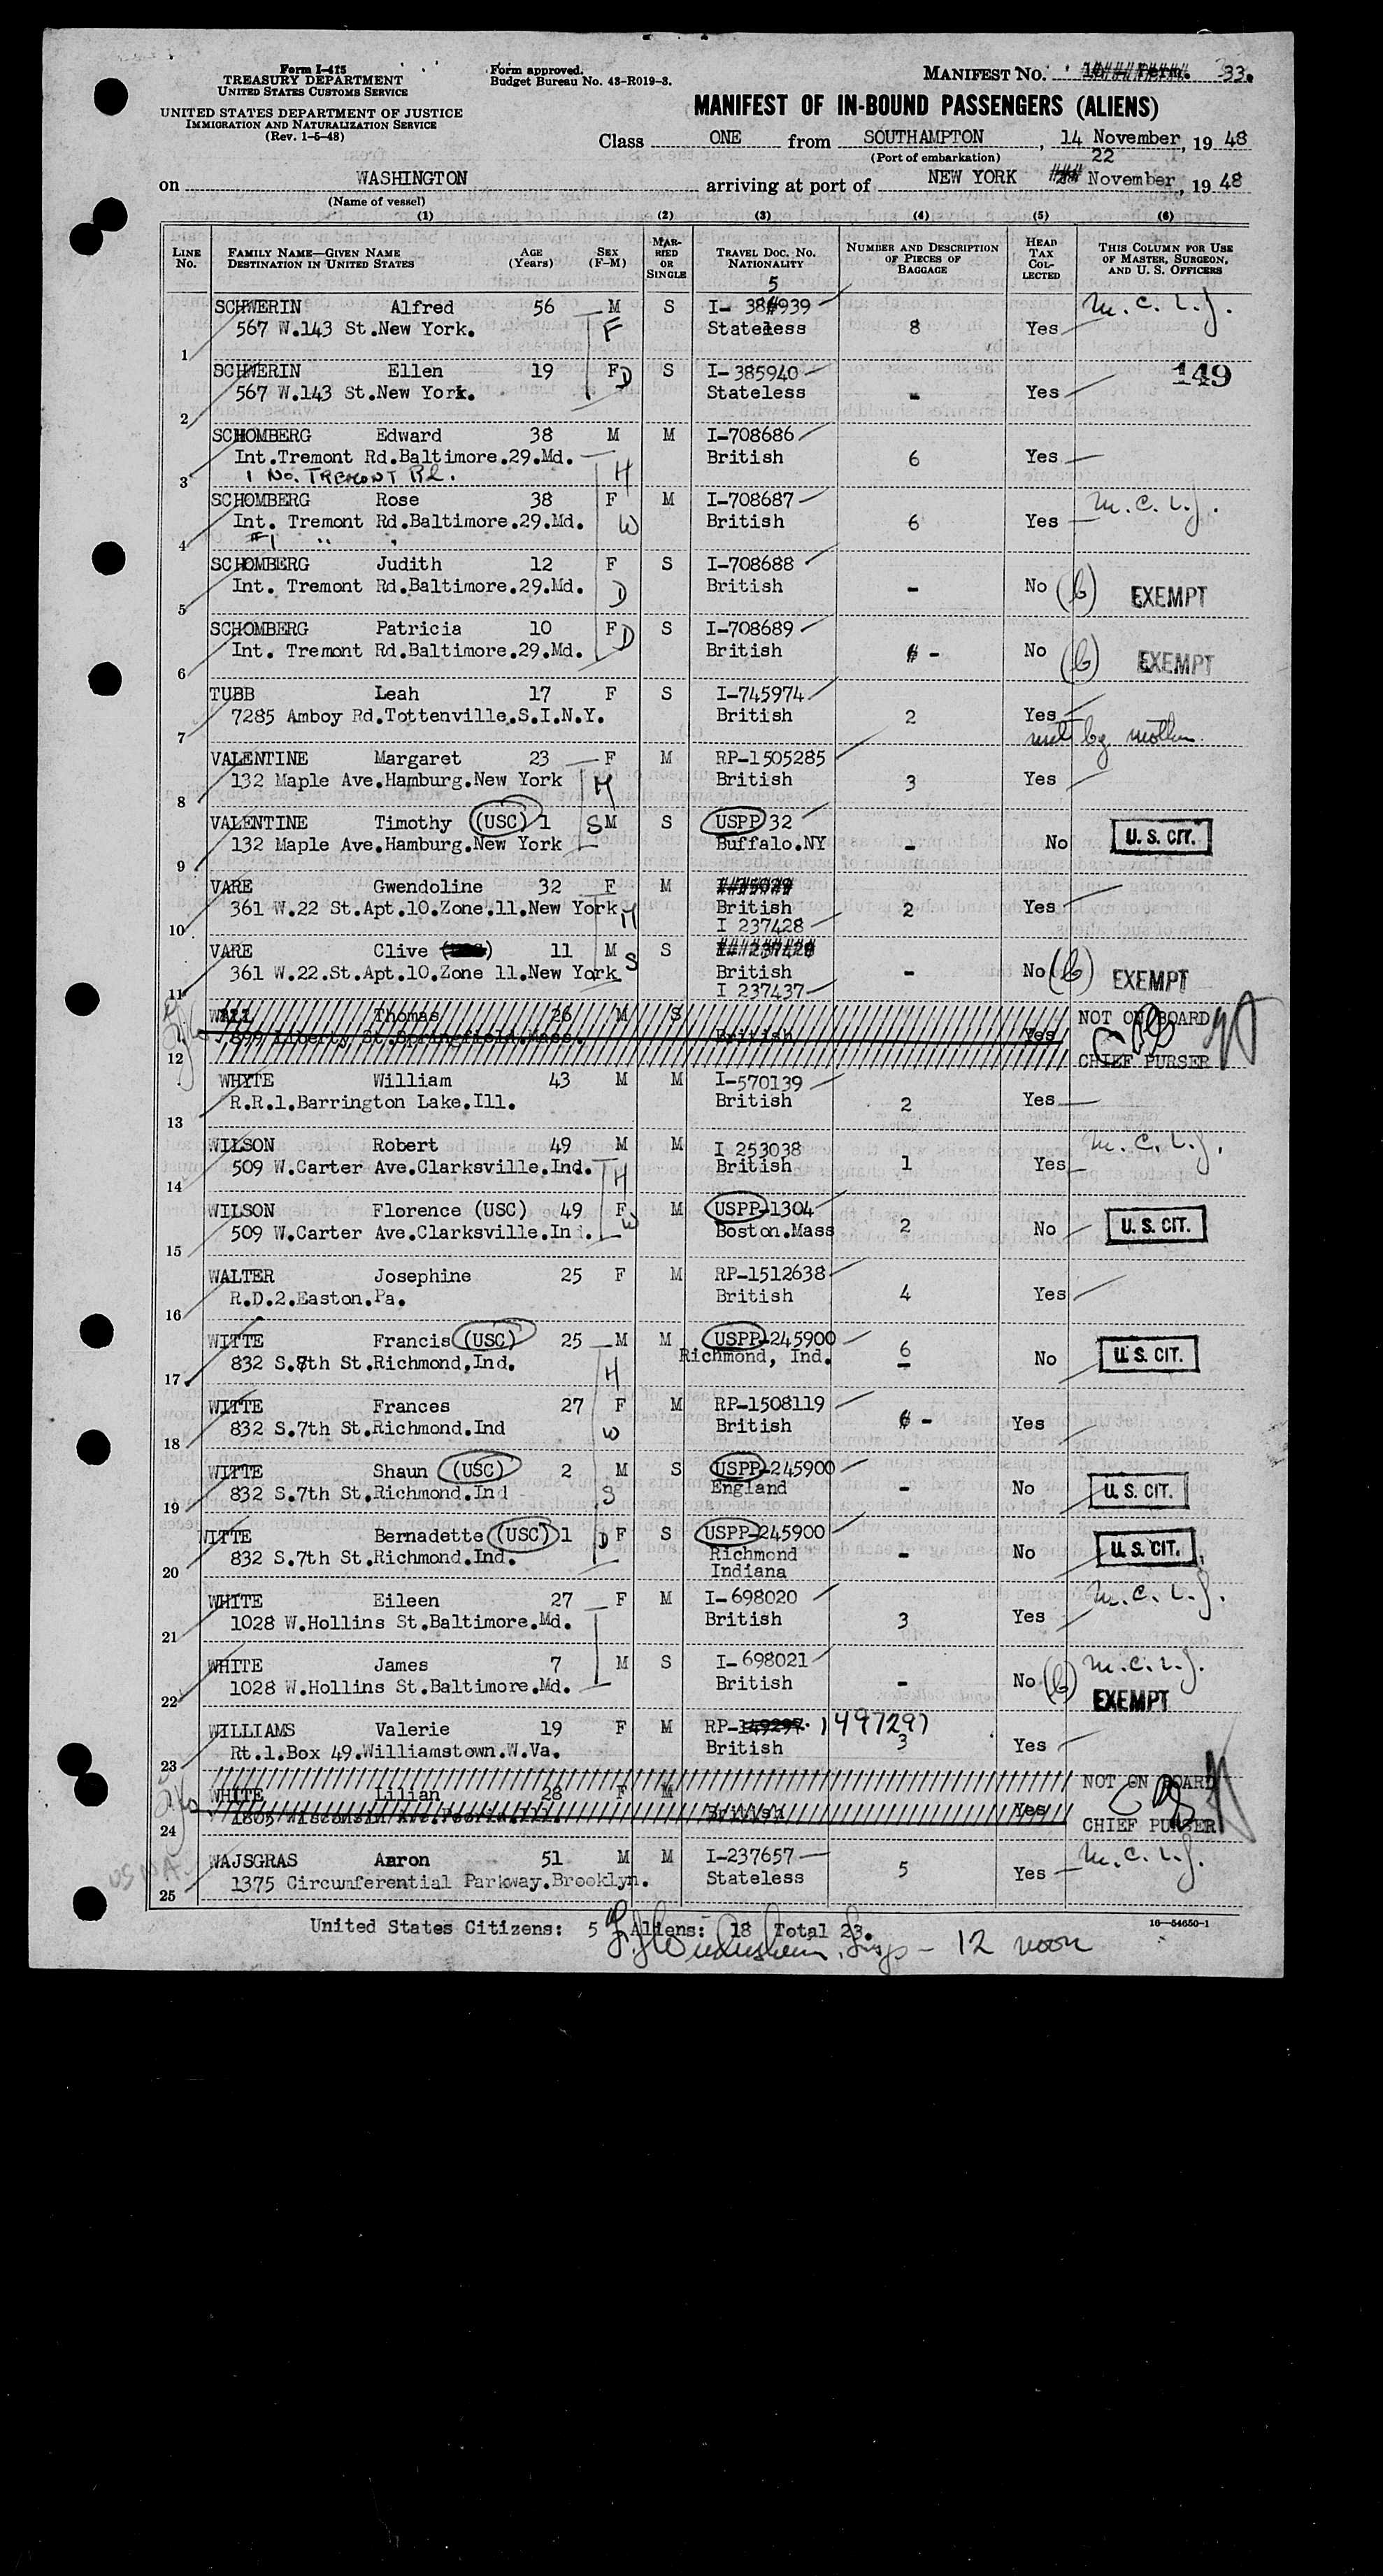 Form I-415
TREASURY DEPARTMENT
UNITED STATES CUSTOMS SERVICE
UNITED STATES DEPARTMENT OF JUSTICE
IMMIGRATION AND NATURALIZATION SERVICE
(Rev. 1-5-48)
Form approved.
Budget Bureau No. 43-R019-3.
MANIFEST NO. 33.
MANIFEST OF IN-BOUND PASSENGERS (ALIENS)
Class ONE from SOUTHAMPTON, 14 November, 19 48
(Port of embarkation)
on WASHINGTON arriving at port of NEW YORK 22 November, 19 48
(Name of vessel)
(1) (2) (3) (4) (5) (6)
LINE No. FAMILY NAME—GIVEN NAME DESTINATION IN UNITED STATES AGE (Years) SEX (F-M) MARRIED OR SINGLE TRAVEL DOC. NO. NATIONALITY NUMBER AND DESCRIPTION OF PIECES OF BAGGAGE HEAD TAX COLLECTED THIS COLUMN FOR USE OF MASTER, SURGEON, AND U. S. OFFICERS
5
SCHWERIN Alfred 56 M S I- 384939 m.c.l.j.
567 W.143 St.New York. F Stateless 8 Yes
1
SCHWERIN Ellen 19 F D S I-385940 149
567 W.143 St.New York. Stateless - Yes
2
SCHOMBERG Edward 38 M M I-708686
Int.Tremont Rd.Baltimore.29.Md. British 6 Yes
3 1 No. TREMONT Rd. H
SCHOMBERG Rose 38 F M I-708687 m.c.l.j.
Int. Tremont Rd.Baltimore.29.Md. W British 6 Yes
4 #1 " "
SCHOMBERG Judith 12 F S I-708688
Int. Tremont Rd.Baltimore.29.Md. D British - No (b) EXEMPT
5
SCHOMBERG Patricia 10 F D S I-708689
Int. Tremont Rd.Baltimore.29.Md. British 6 - No (b) EXEMPT
6
TUBB Leah 17 F S I-745974
7285 Amboy Rd.Tottenville.S.I.N.Y. British 2 Yes
7 met by mother.
VALENTINE Margaret 23 F M RP-1505285
132 Maple Ave.Hamburg.New York M British 3 Yes
8
VALENTINE Timothy (USC) 1 S M S USPP 32
132 Maple Ave.Hamburg.New York Buffalo.NY - No U.S. CIT.
9
VARE Gwendoline 32 F M
361 W.22 St.Apt.10.Zone.11.New York M British 2 Yes
10 I 237428
VARE Clive 11 M S S
361 W.22.St.Apt.10.Zone 11.New York British - No (b) EXEMPT
11 I 237437
WALL Thomas 26 M S NOT ON BOARD
899 Liberty St.Springfield.Mass. British Yes
12 CHIEF PURSER
WHYTE William 43 M M I-570139
R.R.1.Barrington Lake.Ill. British 2 Yes
13
WILSON Robert 49 M M I 253038 m.c.l.j.
509 W.Carter Ave.Clarksville.Ind. H British 1 Yes
14
WILSON Florence (USC) 49 F W M USPP-1304
509 W.Carter Ave.Clarksville.Ind. Boston.Mass 2 No U.S. CIT.
15
WALTER Josephine 25 F M RP-1512638
R.D.2.Easton.Pa. British 4 Yes
16
WITTE Francis (USC) 25 M M USPP-245900 6
832 S.7th St.Richmond,Ind. H Richmond, Ind. No U.S. CIT.
17
WITTE Frances 27 F M RP-1508119
832 S.7th St.Richmond.Ind W British 6 - Yes
18
WITTE Shaun (USC) 2 M S USPP-245900
832 S.7th St.Richmond.Ind S England - No U.S. CIT.
19
WITTE Bernadette (USC) 1 D F S USPP-245900
832 S.7th St.Richmond.Ind. Richmond - No U.S. CIT.
20 Indiana
WHITE Eileen 27 F M I-698020 m.c.l.j.
1028 W.Hollins St.Baltimore.Md. British 3 Yes
21
WHITE James 7 M S I-698021 m.c.l.j.
1028 W.Hollins St.Baltimore.Md. British - No (b) EXEMPT
22
WILLIAMS Valerie 19 F M RP-149297 1497297
Rt.1.Box 49.Williamstown.W.Va. British 3 Yes
23
WHITE Lilian 28 F M NOT ON BOARD
1805 Wisconsin Ave.Peoria.Ill. British Yes
24 CHIEF PURSER
WAJSGRAS Aaron 51 M M I-237657 m.c.l.j.
1375 Circumferential Parkway.Brooklyn. Stateless 5 Yes
25
United States Citizens: 5 Aliens: 18 Total 23.
16—54650-1
- 12 noon